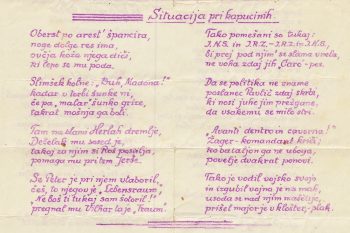 Situacija pri kapucinih.
Oberst po arest' špancira,
noge dolge res ima,
ovčja koža njega diči,
ki lepe su mu poda.
Slimšek kolne: "Buh, Madona!"
kadar v torbi šunke ni,
če pa "malar" šunko grize,
takrat mošnja ga boli.
Tam na slami Herlah dremlje,
Dečelak mu sosed je,
takoj za njim si Kos postilja,
pomaga mu pri tem Jerše.
Se Peter je pri njem utaboril,
češ, to njegov je "Lebensraum",
"Ne boš ti tukaj sam sotoril!"
pregnal mu Vihar ta je "traum".
Tako pomešani so tukaj:
I.N.S. in I.R.Z. - I.R.Z. in I.N.S.,
bi prej pod njim' se slama vnela,
ne voha zdaj jih "Caré"-pes.
Da se politika ne zname
poslanec Pavlič zdaj skrbi,
ki nosi juhe jim prežgane,
da vsakemu se milo stri.
"Avanti dentro in caverna!"
Žager-komandant kriči,
No bataljon ga ne uboga,
povelje dvakrat ponovi.
Tako je vodil vojsko svojo
in izgubil vojno je na mah,
usoda se nad njim maščuje,
prišel major je v klošter, - plah.